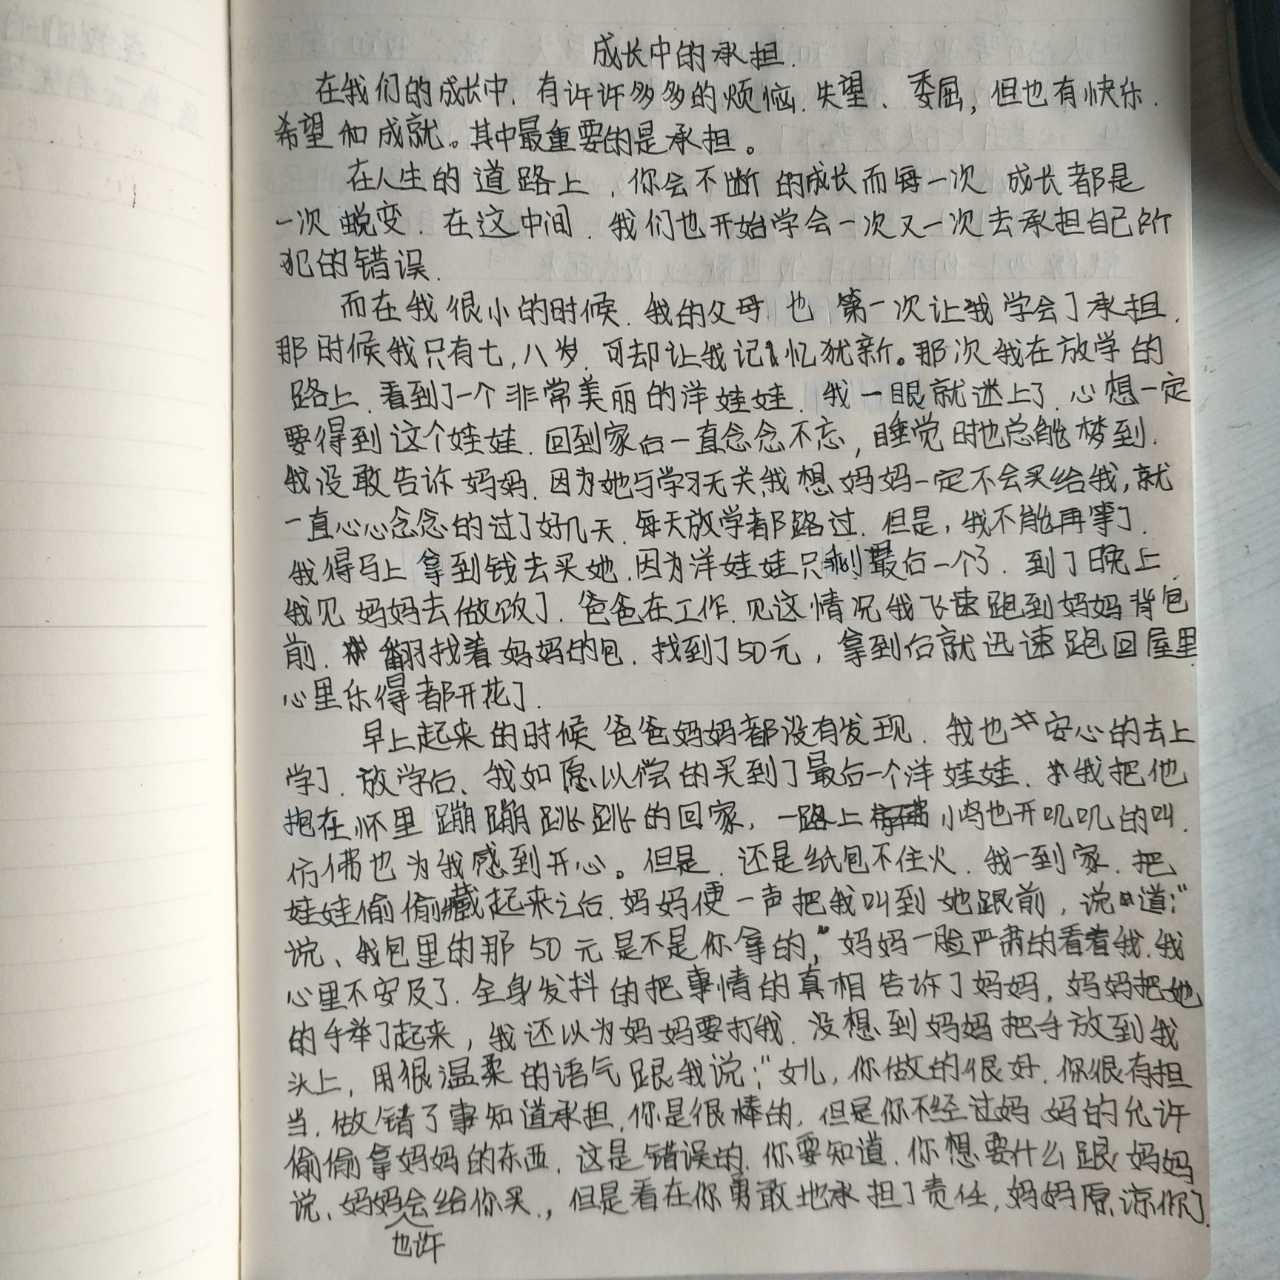 成长中的承担.
在我们的成长中.有许许多多的烦恼.失望.委屈,但也有快乐.
希望和成就。其中最重要的是承担。
在人生的道路上,你会不断的成长而每一次成长都是
一次蜕变.在这中间.我们也开始学会一次又一次去承担自己所
犯的错误.
而在我很小的时候.我的父母也第一次让我学会了承担.
那时候我只有七,八岁.可却让我记忆犹新。那次我在放学的
路上.看到了一个非常美丽的洋娃娃.我一眼就迷上了.心想一定
要得到这个娃娃.回到家后一直念念不忘,睡觉时也总能梦到.
我没敢告诉妈妈.因为她与学习无关,我想妈妈一定不会买给我,就
一直心心念念的过了好几天.每天放学都路过.但是,我不能再等了.
我得马上拿到钱去买她.因为洋娃娃只剩最后一个了.到了晚上.
我见妈妈去做饭了.爸爸在工作.见这情况我飞速跑到妈妈背包
前.翻找着妈妈的包.找到了50元,拿到后就迅速跑回屋里
心里乐得都开花了.
早上起来的时候爸爸妈妈都没有发现.我也安心的去上
学了.放学后、我如愿以偿的买到了最后一个洋娃娃.我把他
抱在怀里蹦蹦跳跳的回家,一路上小鸟也开叽叽的叫.
仿佛也为我感到开心。但是.还是纸包不住火.我一到家.把
娃娃偷偷藏起来之后.妈妈便一声把我叫到她跟前,说道:"
说、我包里的那50元是不是你拿的,"妈妈一脸严肃的看着我.我
心里不安及了.全身发抖的把事情的真相告诉了妈妈,妈妈把她
的手举了起来,我还以为妈妈要打我.没想到妈妈把手放到我
头上,用很温柔的语气跟我说:"女儿,你做的很好.你很有担
当.做错了事知道承担.你是很棒的,但是你不经过妈妈的允许
偷偷拿妈妈的东西.这是错误的.你要知道.你想要什么跟妈妈
说、妈妈会给你买.,但是看在你勇敢地承担了责任,妈妈原谅你了.
也许